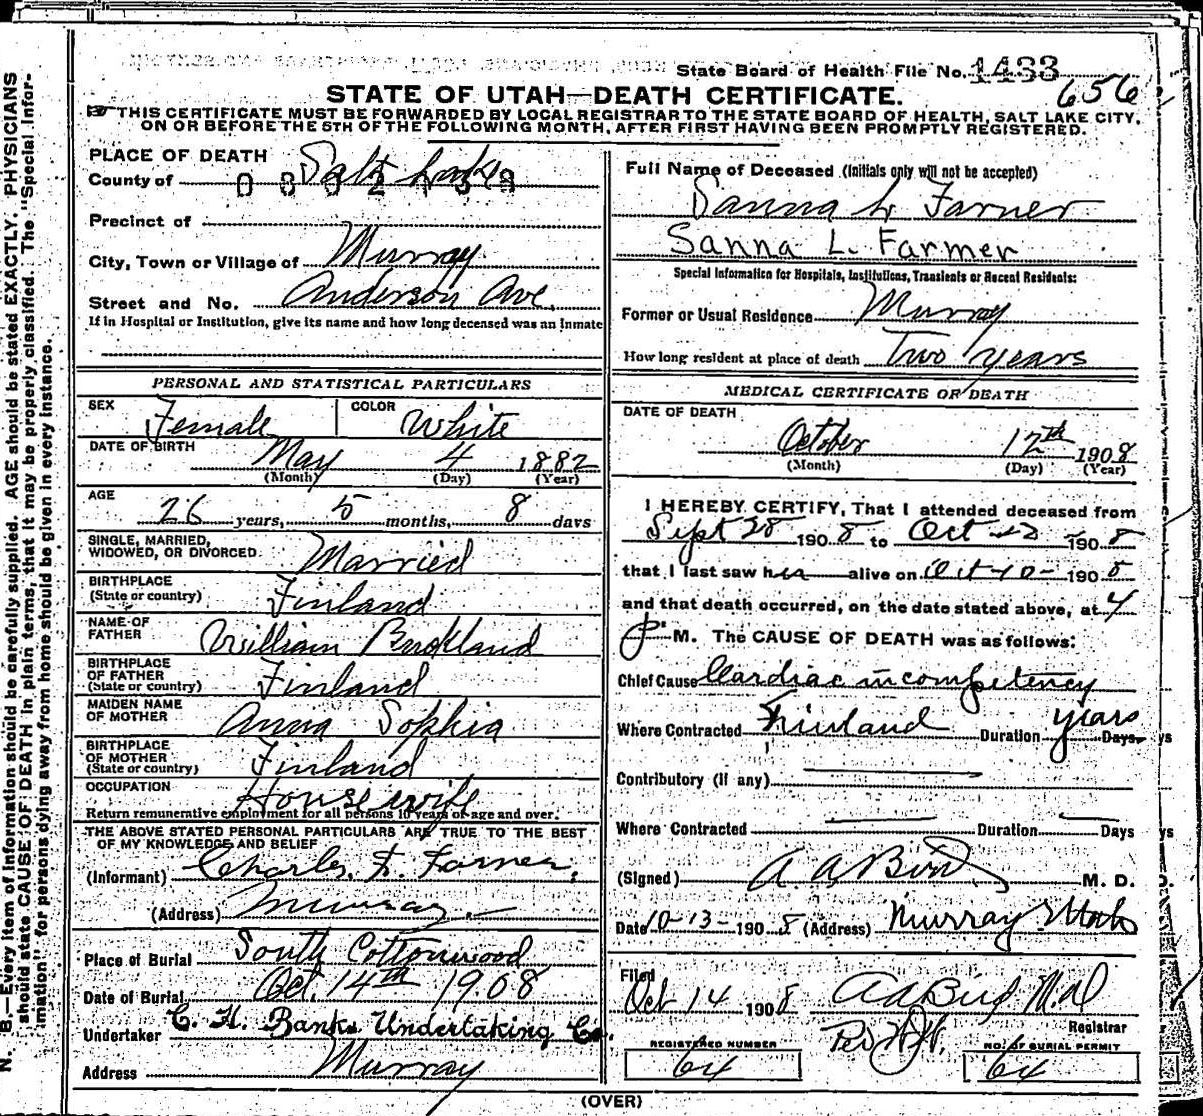 State Board of Health File No. 1433
656
STATE OF UTAH—DEATH CERTIFICATE.
THIS CERTIFICATE MUST BE FORWARDED BY LOCAL REGISTRAR TO THE STATE BOARD OF HEALTH, SALT LAKE CITY,
ON OR BEFORE THE 5TH OF THE FOLLOWING MONTH, AFTER FIRST HAVING BEEN PROMPTLY REGISTERED.
N. B.—Every item of information should be carefully supplied. AGE should be stated EXACTLY. PHYSICIANS
should state CAUSE OF DEATH in plain terms, that it may be properly classified. The "Special Infor-
mation" for persons dying away from home should be given in every instance.
PLACE OF DEATH
County of Salt Lake
Precinct of
City, Town or Village of Murray
Street and No. Anderson Ave.
If in Hospital or Institution, give its name and how long deceased was an inmate
PERSONAL AND STATISTICAL PARTICULARS
SEX Female COLOR White
DATE OF BIRTH May 4 1882
(Month) (Day) (Year)
AGE 26 years, 5 months, 8 days
SINGLE, MARRIED,
WIDOWED, OR DIVORCED Married
BIRTHPLACE
(State or country) Finland
NAME OF
FATHER William
BIRTHPLACE
OF FATHER
(State or country) Finland
MAIDEN NAME
OF MOTHER Anna Sophia
BIRTHPLACE
OF MOTHER
(State or country) Finland
OCCUPATION Housewife
Return remunerative employment for all persons 10 years of age and over.
THE ABOVE STATED PERSONAL PARTICULARS ARE TRUE TO THE BEST
OF MY KNOWLEDGE AND BELIEF
(Informant) Charles F. Farner,
(Address) Murray.
Place of Burial South Cottonwood
Date of Burial Oct. 14th 1908
Undertaker C. H. Banks Undertaking Co.
Address Murray
Full Name of Deceased (Initials only will not be accepted)
Sanna L Farner
Sanna L. Farmer
Special Information for Hospitals, Institutions, Transients or Recent Residents:
Former or Usual Residence Murray
How long resident at place of death Two years
MEDICAL CERTIFICATE OF DEATH
DATE OF DEATH
October 12th 1908
(Month) (Day) (Year)
I HEREBY CERTIFY, That I attended deceased from
Sept 28 1908 to Oct 12 1908
that I last saw her alive on Oct 10 - 1908
and that death occurred, on the date stated above, at 4
P. M. The CAUSE OF DEATH was as follows:
Chief Cause Cardiac incompetency
Where Contracted Finland Duration years Days
Contributory (if any)
Where Contracted Duration Days
(Signed) A A Bird M. D.
Date 10-13-1908 (Address) Murray Utah
Filed
Oct 14 1908 A A Bird M.D.
Registrar
Per
REGISTERED NUMBER
64
NO. OF BURIAL PERMIT
64
(OVER)